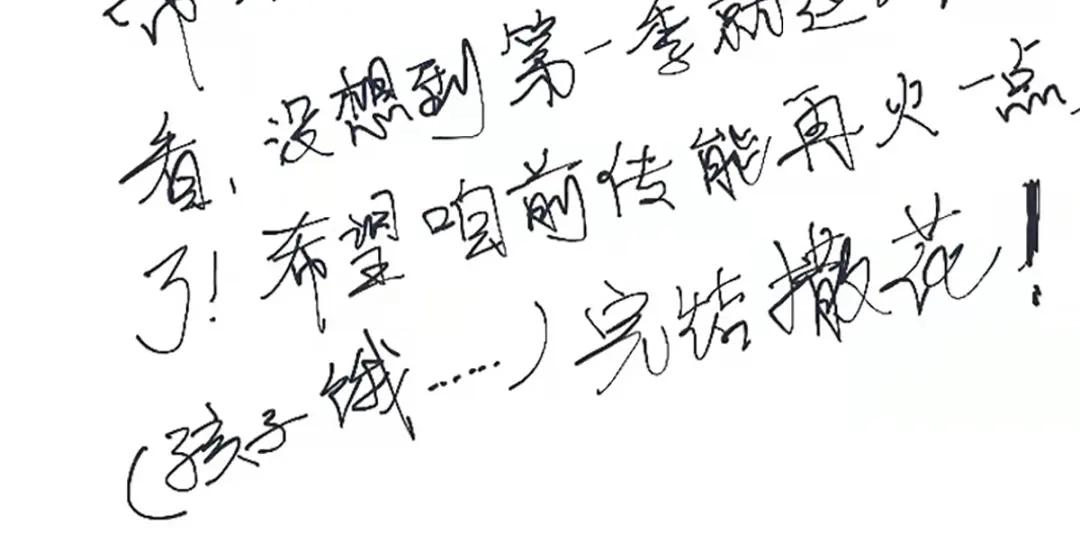 看，没想到第一季就这
了！希望咱前传能再火一点，
（孩子饿……）完结撒花！